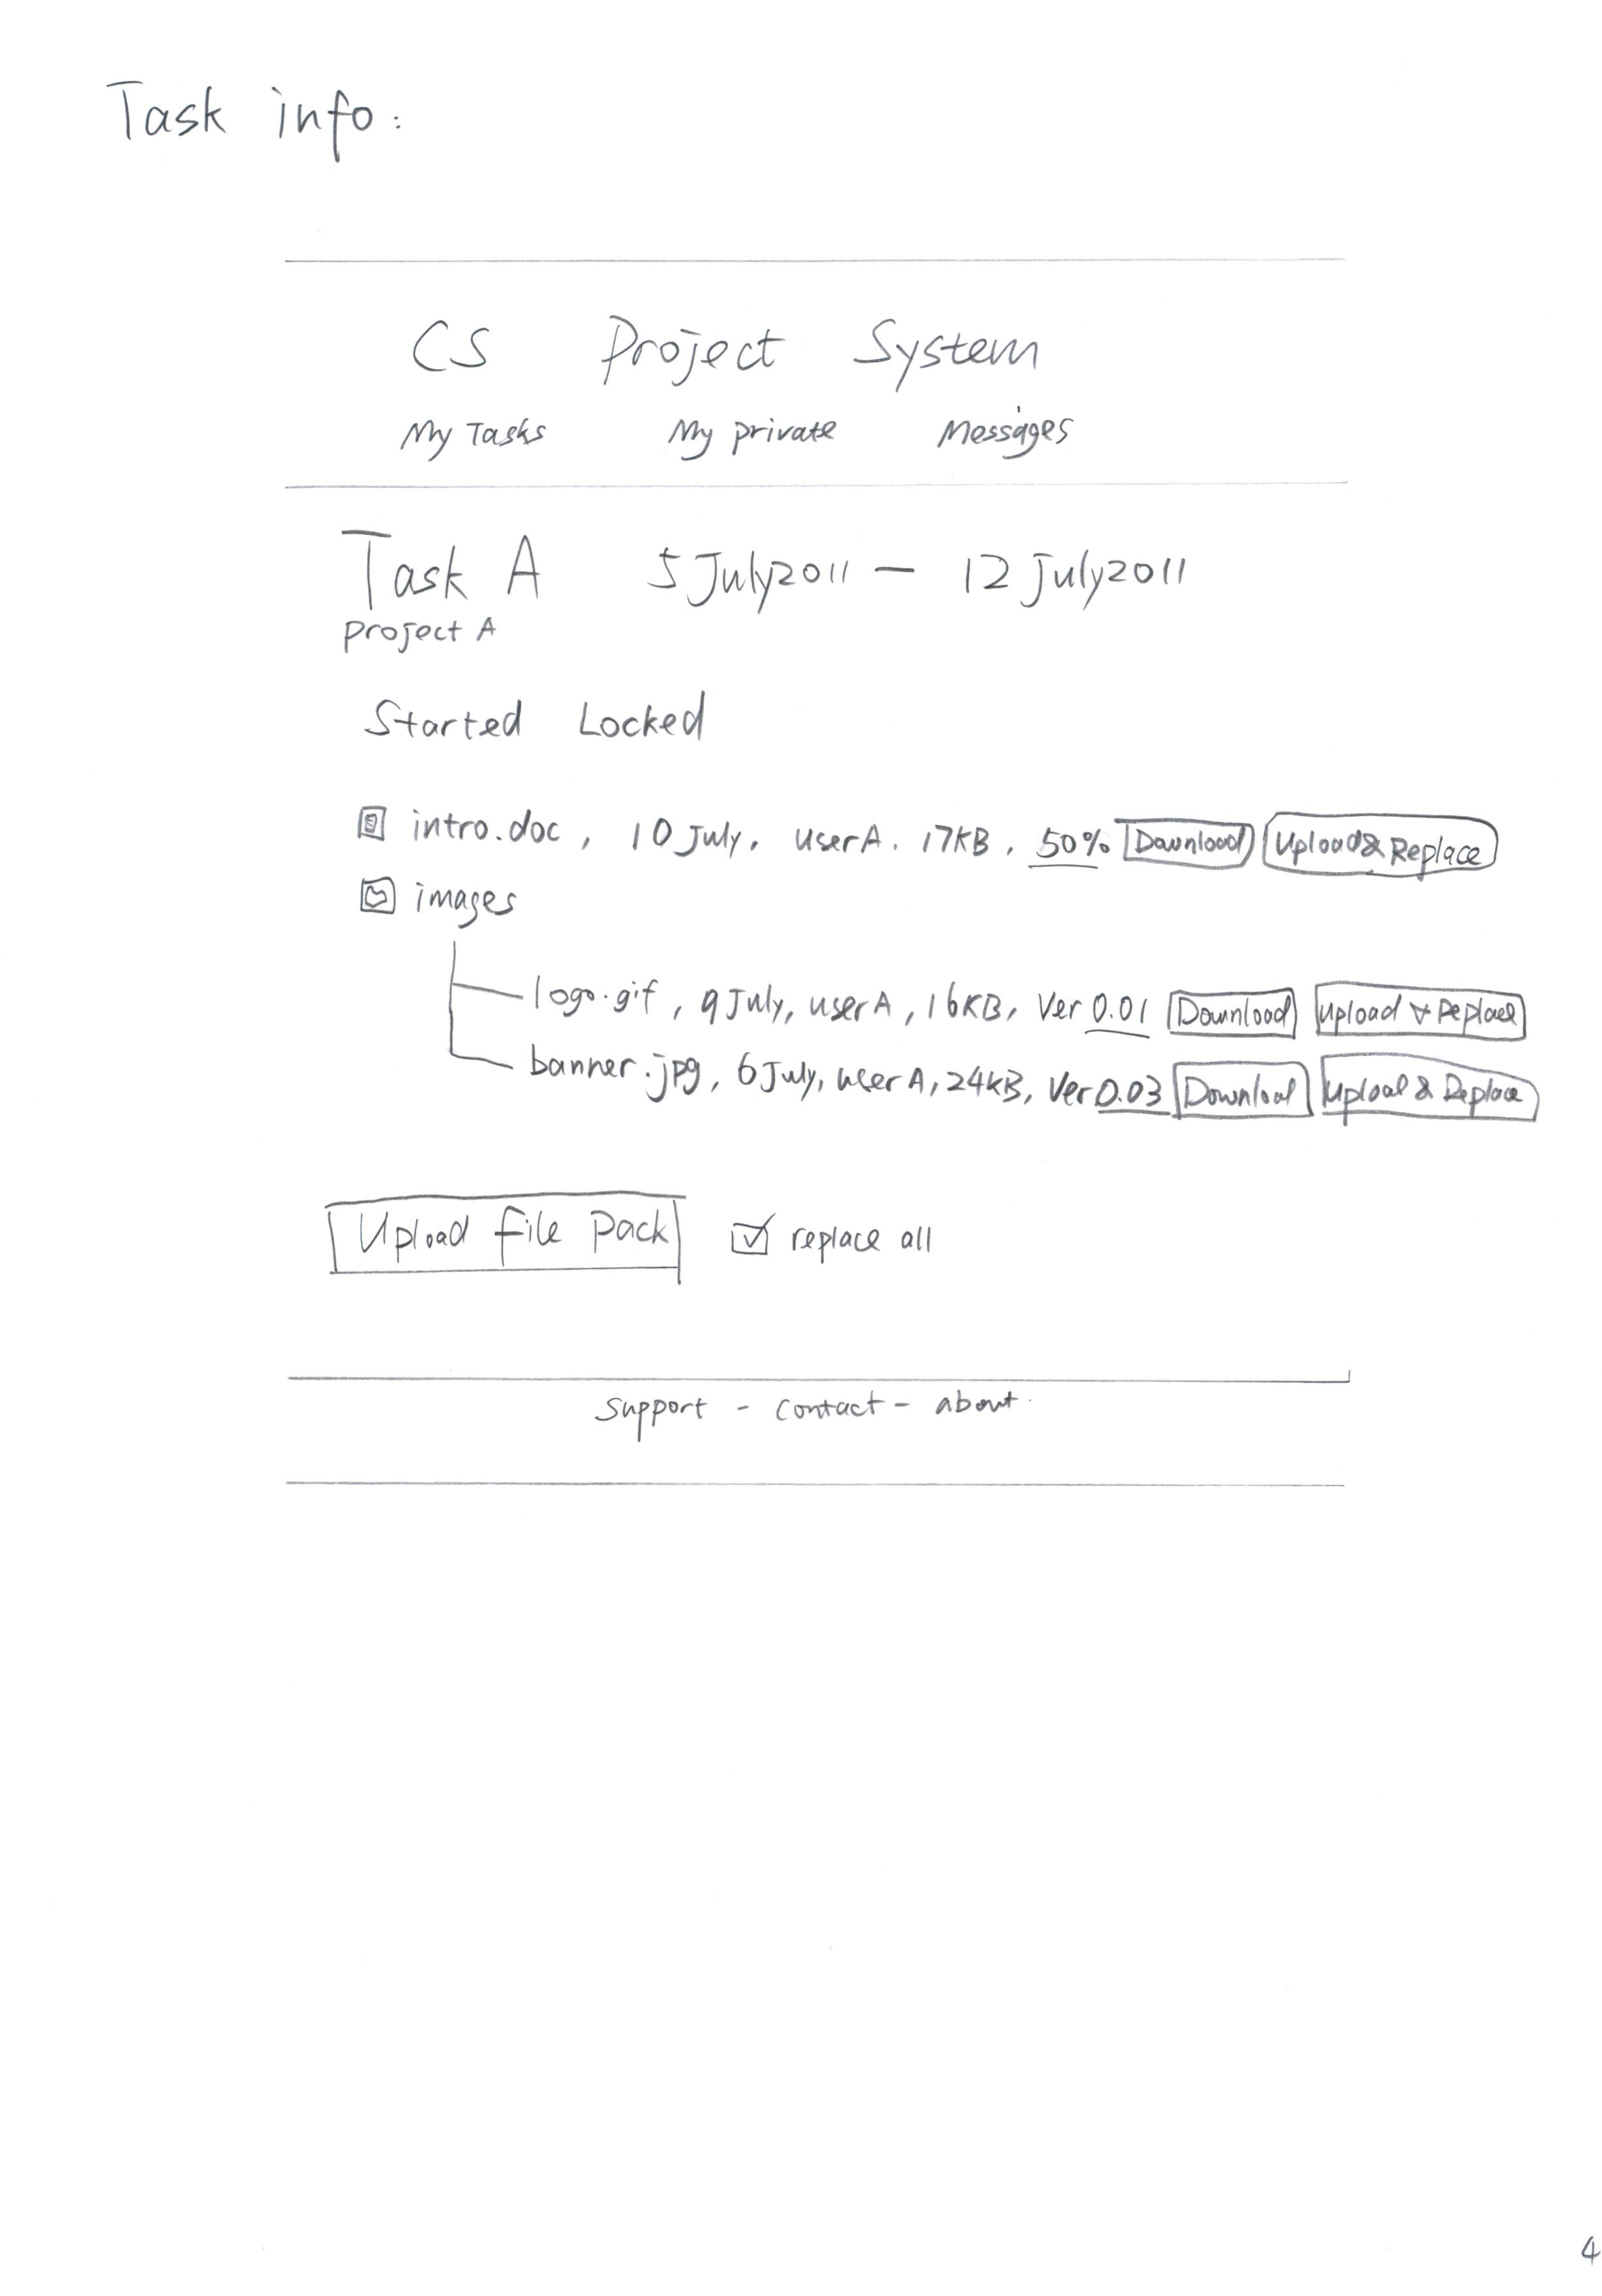 Task info:
CS Project System
My Tasks My private Messages
Task A 5 July 2011 — 12 july 2011
project A
Started Locked
intro.doc, 10 July, userA. 17KB, 50% Download Upload & Replace
images
logo.gif, 9 July, userA, 16KB, Ver 0.01 Download Upload & Replace
banner.jpg, 6 July, userA, 24KB, Ver 0.03 Download Upload & Replace
Upload file pack replace all
support - contact - about.
4